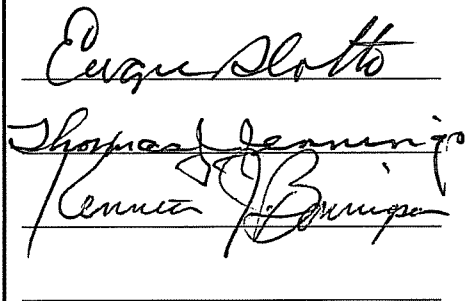 Eugene Slotto
Thomas J Jennings
Kenneth J.